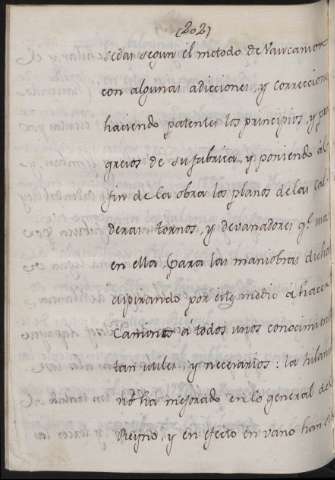 (202)
sedas segun el metodo de Vaucanson
con algunas adicciones, y correccion
haciendo patentes los principios, y pro
gresos de su fabrica, y poniendo al
fin de la obra los planos de las cal
deras, tornos, y devanadores qe
en ella para las maniobras dichas
aspirando por este medio á hacer
comunes a todos unos conocimien
tan utiles, y necesarios: la hilanz
no ha mejorado en lo general del
Reyno, y en efecto en vano han